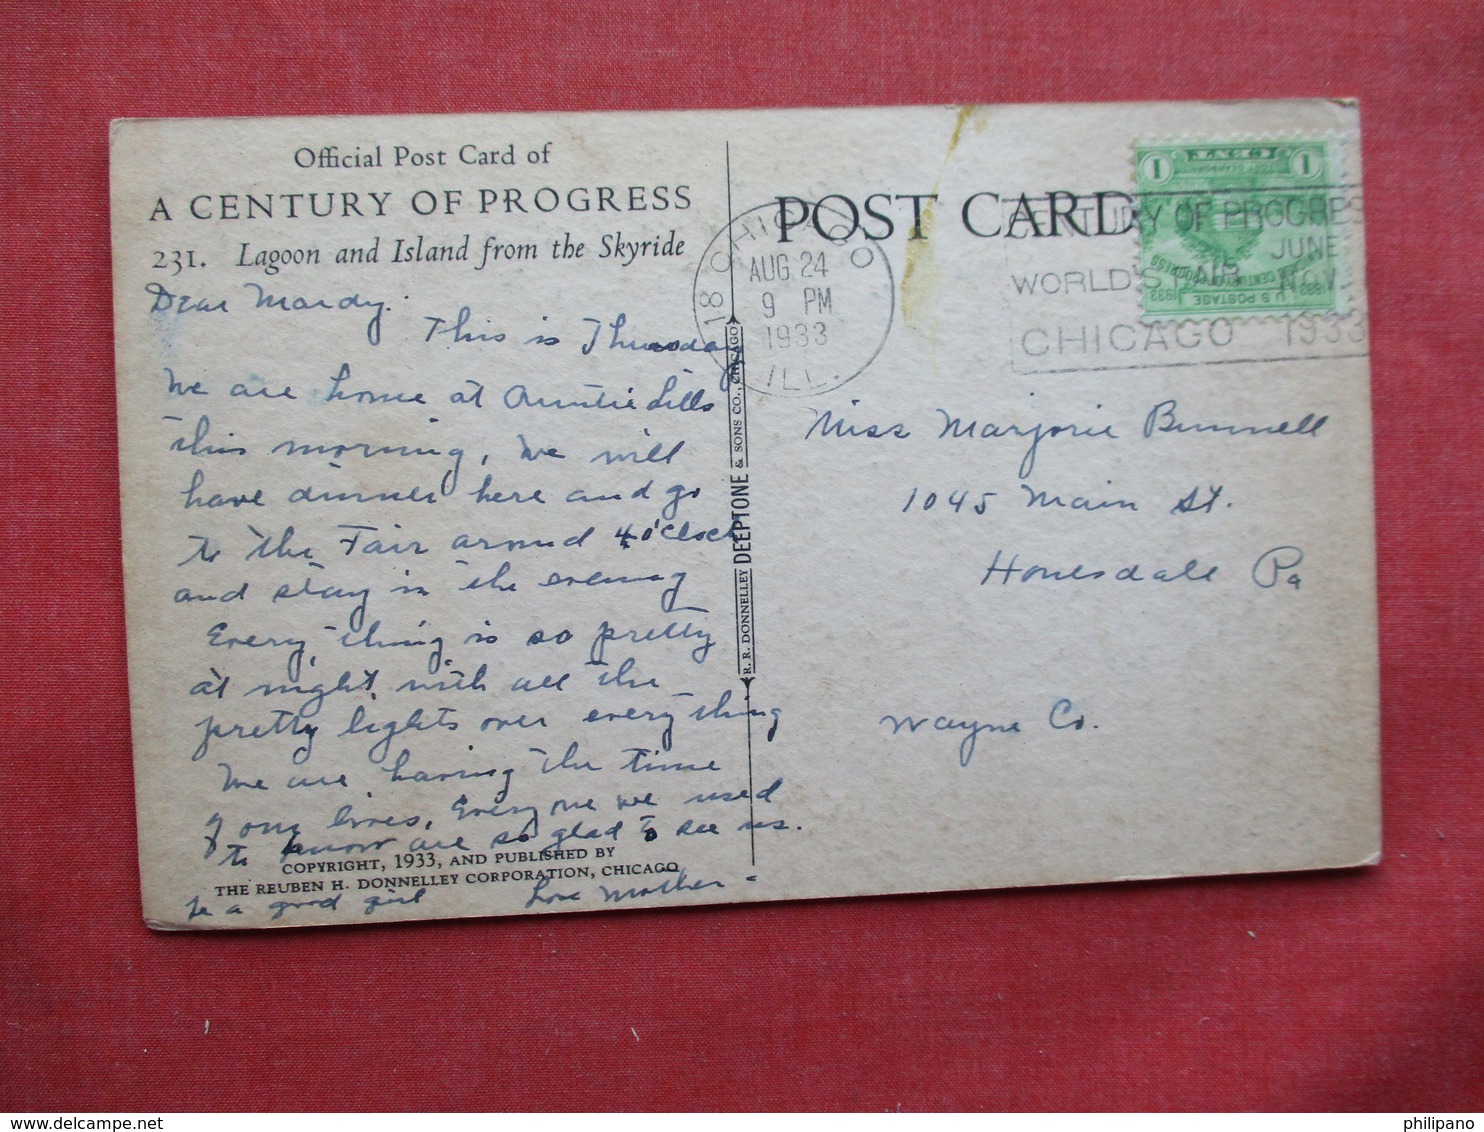 Official Post Card of
A CENTURY OF PROGRESS
231. Lagoon and Island from the Skyride
Dear Mardy:
This is Thursday
We are home at Auntie Lills
this morning, We will
have dinner here and go
to the Fair around 4 o'clock
and stay in the evening
Every thing is so pretty
at night, with all the
pretty lights over every thing
We are having the time
of our lives, Every one we used
to know are so glad to see us.
COPYRIGHT, 1933, AND PUBLISHED BY
THE REUBEN H. DONNELLEY CORPORATION, CHICAGO
be a good girl Love Mother
R. R. DONNELLEY DEEPTONE & SONS CO., CHICAGO
POST CARD
18 CHICAGO
AUG 24
9 PM
1933
ILL.
CENTURY OF PROGRES
JUNE
WORLD'S AIR NOV.
CHICAGO 1933
1 1
U.S. POSTAGE
1833 1933
Miss Marjorie Bunnell
1045 Main St.
Honesdale Pa
Wayne Co.
philipano